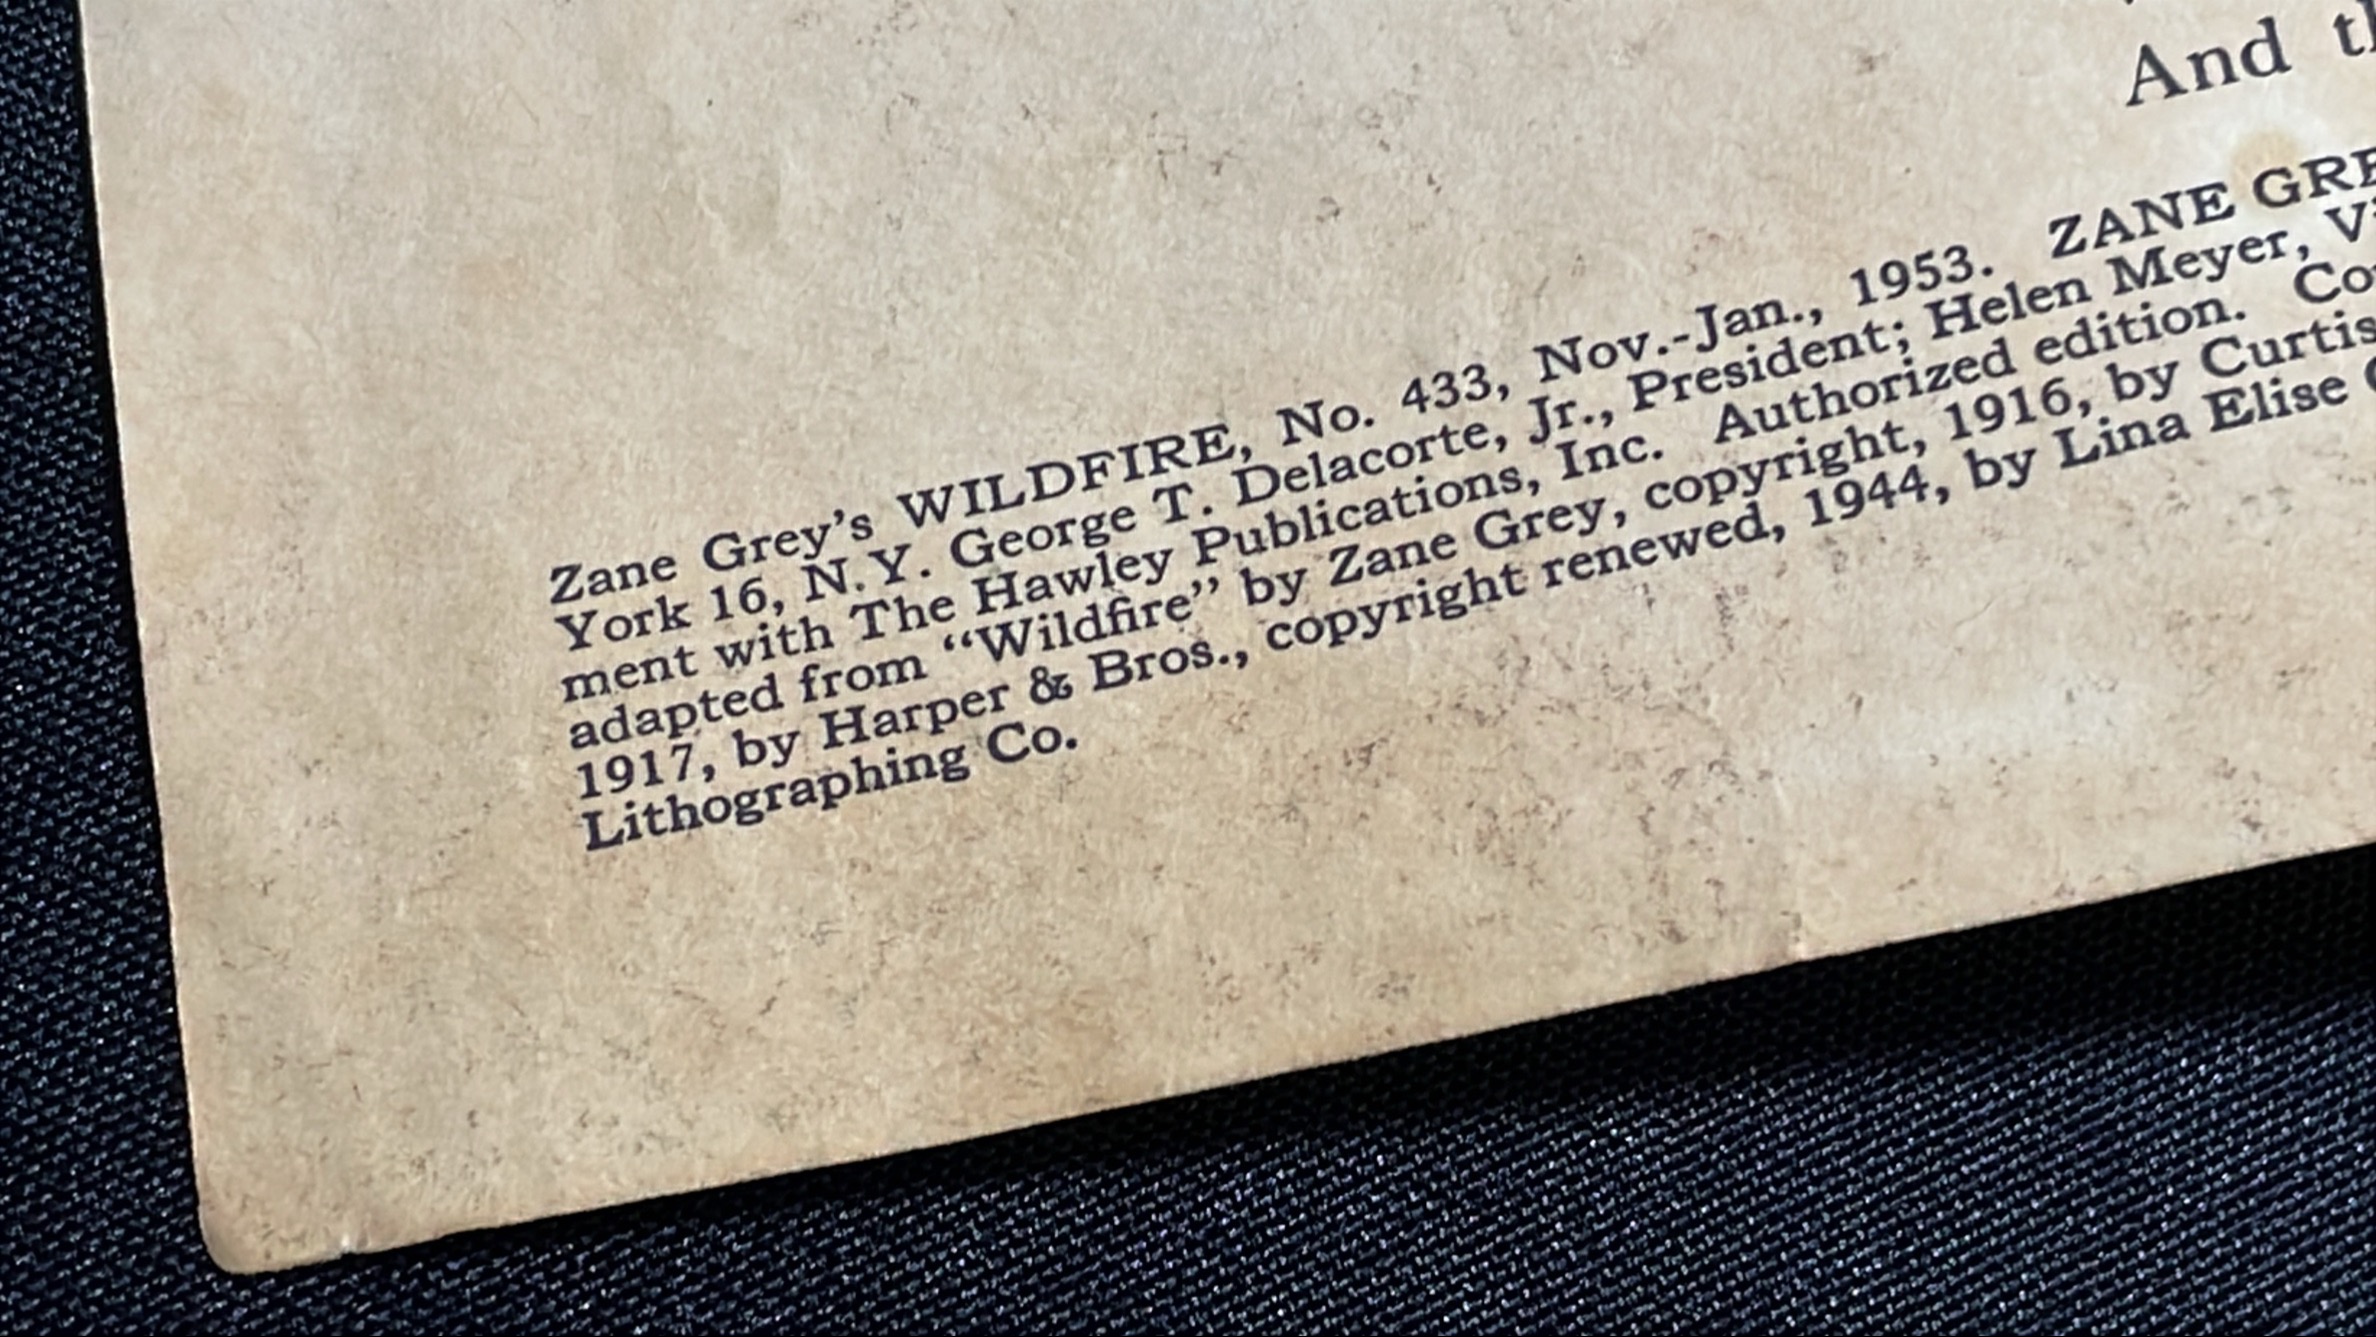 And
Zane Grey's WILDFIRE, No. 433, Nov.-Jan., 1953. ZANE
York 16, N.Y. George T. Delacorte, Jr., President; Helen Meyer,
ment with The Hawley Publications, Inc. Authorized edition.
adapted from “Wildfire” by Zane Grey, copyright, 1916, by Curtis
1917, by Harper & Bros., copyright renewed, 1944, by Lina Elise
Lithographing Co.